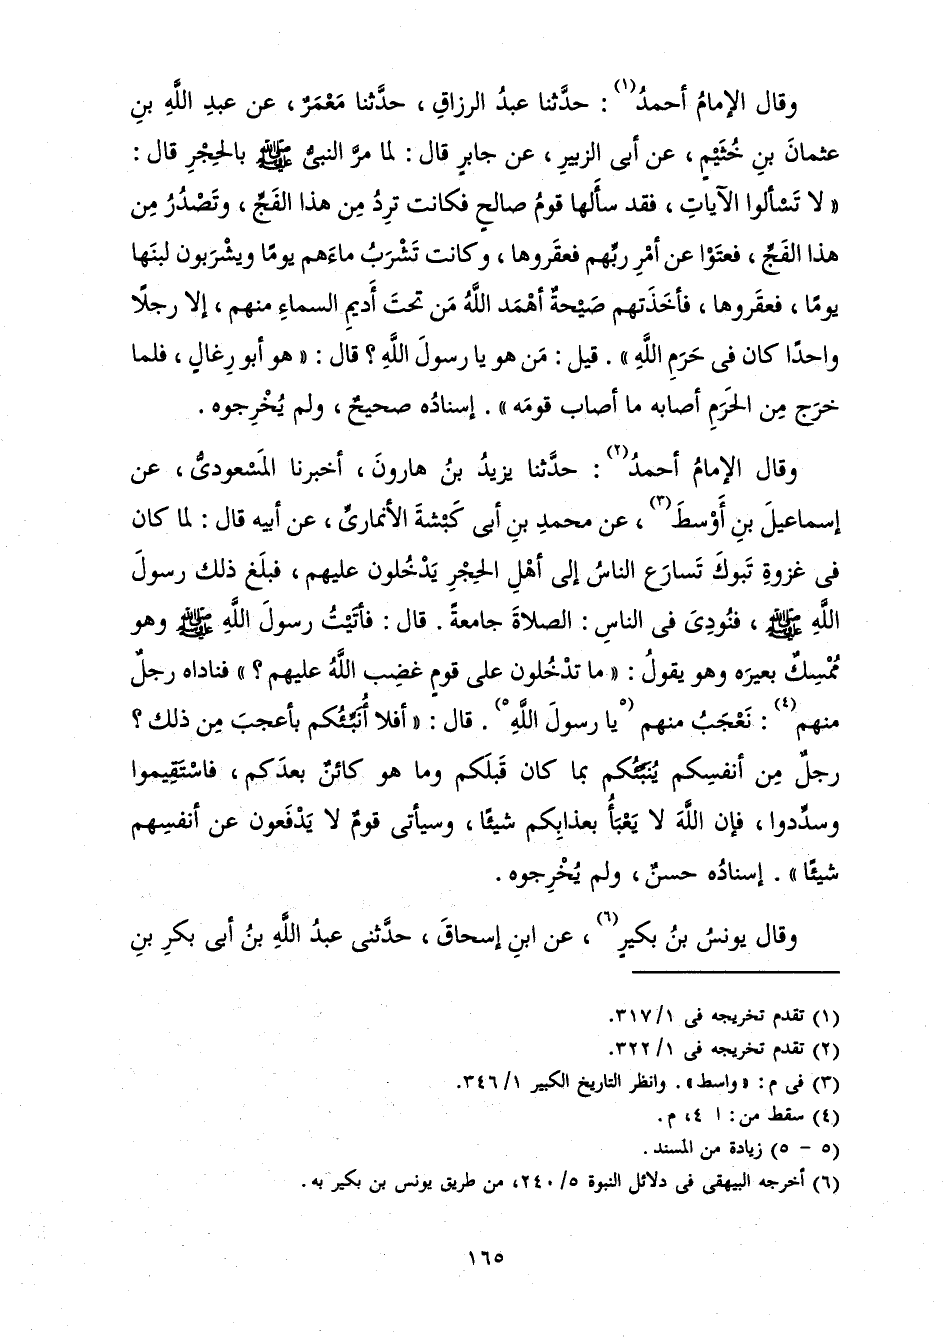 وقال الإمامُ أحمدُ(١) : حدَّثنا عبدُ الرزاقِ ، حدَّثنا مَعْمَرٌ ، عن عبدِ اللَّهِ بنِ
عثمانَ بنِ خُثَيْمٍ ، عن أبى الزبيرِ ، عن جابرٍ قال : لما مرَّ النبىُّ ﷺ بالحِجْرِ قال :
« لا تَسْألوا الآياتِ ، فقد سأَلها قومُ صالحٍ فكانت ترِدُ مِن هذا الفَجِّ ، وتَصْدُرُ مِن
هذا الفَجِّ ، فعتَوْا عن أمْرِ ربِّهم فعقَروها ، وكانت تَشْرَبُ ماءَهم يومًا ويشْرَبون لبنَها
يومًا ، فعقَروها ، فأخَذَتهم صَيْحةٌ أهْمَد اللَّهُ مَن تحتَ أَديمِ السماءِ منهم ، إلا رجلًا
واحدًا كان فى حَرَمِ اللَّهِ » . قيل : مَن هو يا رسولَ اللَّهِ ؟ قال : « هو أبو رِغالٍ ، فلما
خرَج مِن الحَرَمِ أصابه ما أصاب قومَه » . إسنادُه صحيحٌ ، ولم يُخْرِجوه .
وقال الإمامُ أحمدُ(٢) : حدَّثنا يزيدُ بنُ هارونَ ، أخبرنا المَسْعودىُّ ، عن
إسماعيلَ بنِ أَوْسطَ(٣) ، عن محمدِ بنِ أبى كَبْشةَ الأنمارىِّ ، عن أبيه قال : لما كان
فى غزوةِ تَبوكَ تَسارَع الناسُ إلى أهْلِ الحِجْرِ يَدْخُلون عليهم ، فبلَغ ذلك رسولَ
اللَّهِ ﷺ ، فنُودِىَ فى الناسِ : الصلاةَ جامعةً . قال : فأتَيْتُ رسولَ اللَّهِ ﷺ وهو
مُمْسِكٌ بعيرَه وهو يقولُ : « ما تدْخُلون على قومٍ غضِب اللَّهُ عليهم ؟ » فناداه رجلٌ
منهم(٤) : نَعْجَبُ منهم (٥يا رسولَ اللَّهِ٥) . قال : « أفلا أُنَبِّئُكم بأعجبَ مِن ذلك ؟
رجلٌ مِن أنفسِكم يُنَبِّئُكم بما كان قَبلَكم وما هو كائنٌ بعدَكم ، فاسْتَقِيموا
وسدِّدوا ، فإن اللَّهَ لا يَعْبَأُ بعذابِكم شيئًا ، وسيأتى قومٌ لا يَدْفَعون عن أنفسِهم
شيئًا » . إسنادُه حسنٌ ، ولم يُخْرِجوه .
وقال يونسُ بنُ بكيرٍ(٦) ، عن ابنِ إسحاقَ ، حدَّثنى عبدُ اللَّهِ بنُ أبى بكرِ بنِ
(١) تقدم تخريجه فى ١/ ٣١٧.
(٢) تقدم تخريجه فى ١/ ٣٢٢.
(٣) فى م : « واسط » . وانظر التاريخ الكبير ١/ ٣٤٦.
(٤) سقط من : ا ٤، م.
(٥ - ٥) زيادة من المسند .
(٦) أخرجه البيهقى فى دلائل النبوة ٥/ ٢٤٠، من طريق يونس بن بكير به .
١٦٥